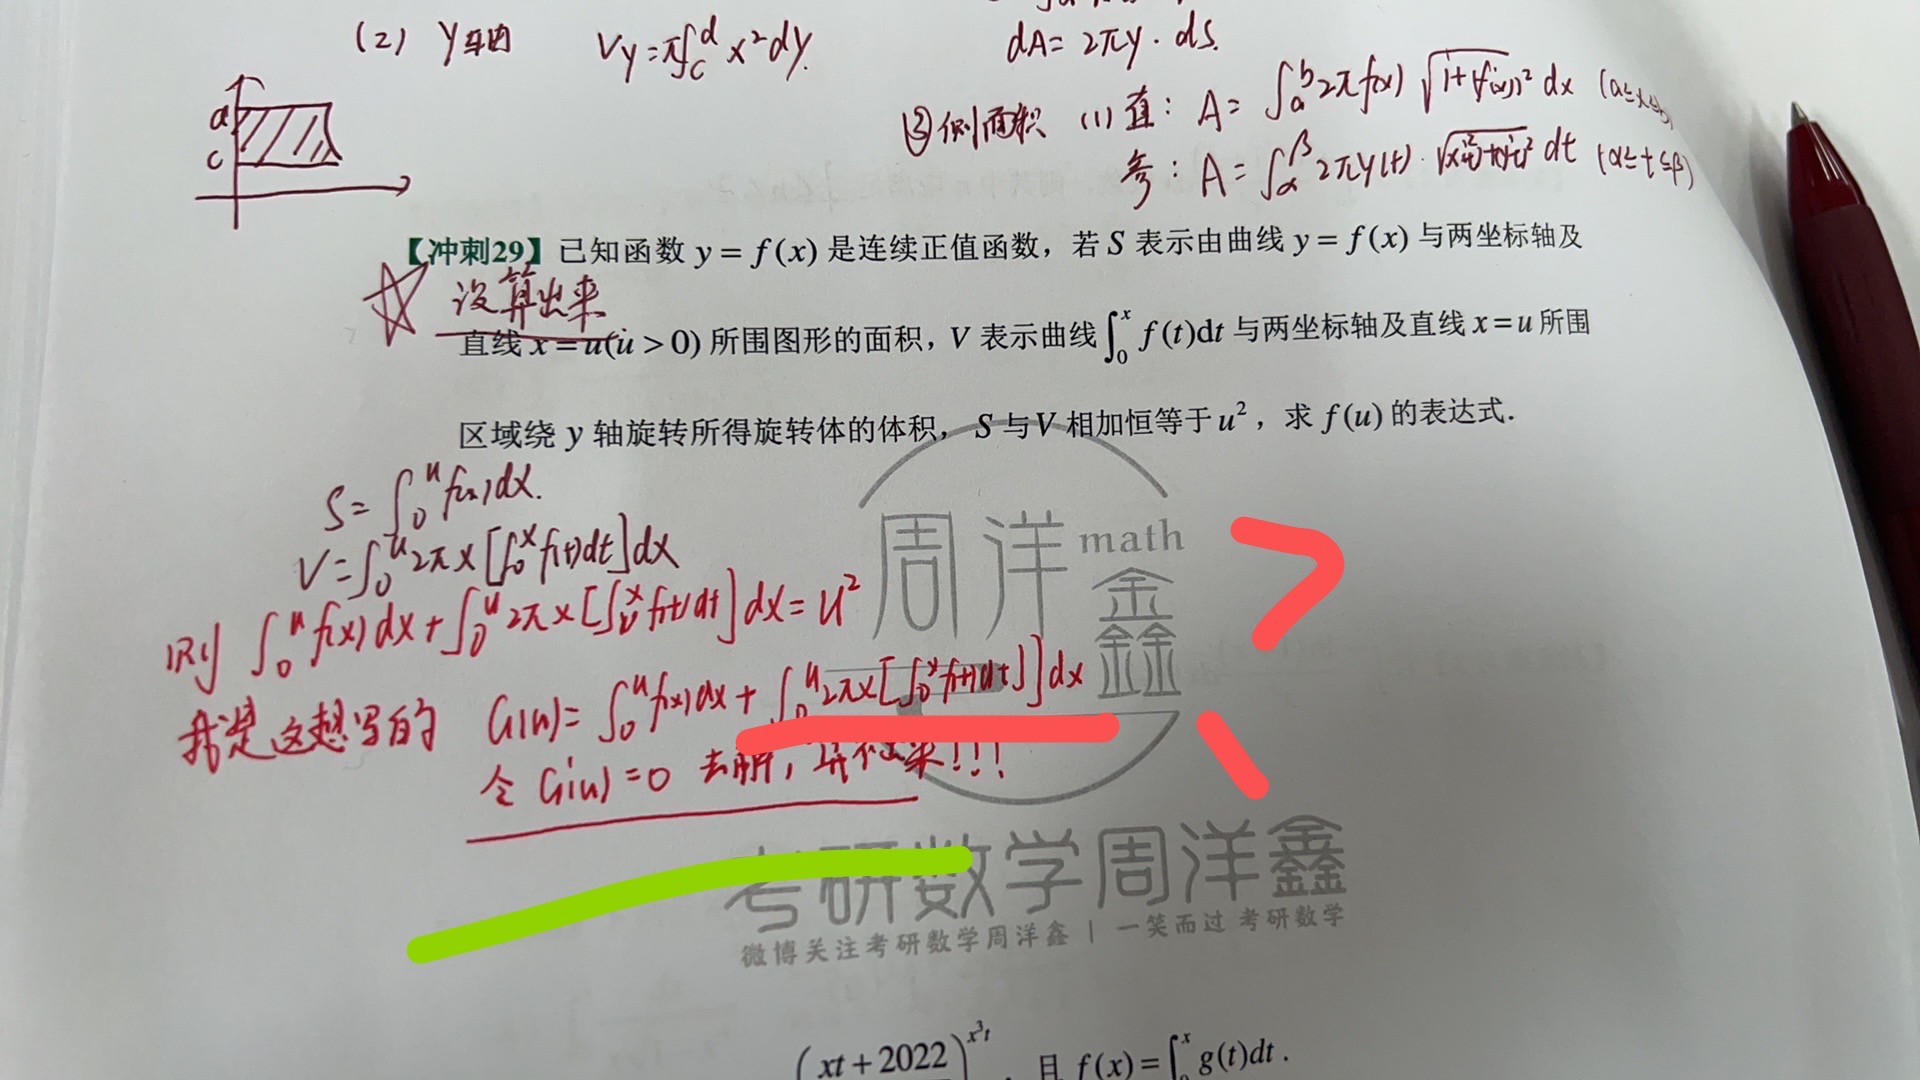 (2) y轴 Vy=π∫_c^d x²dy.
dA=2πy·dS.
③侧面积 (1)直: A=∫_a^b 2πf(x)√(1+(f'(x))²)dx
参: A=∫_α^β 2πy(t)·√(x'(t)²+y'(t)²)dt (α≤t≤β)
d
c
【冲刺29】已知函数 y=f(x) 是连续正值函数，若 S 表示由曲线 y=f(x) 与两坐标轴及
没算出来
直线 x=u(u>0) 所围图形的面积，V 表示曲线∫_0^x f(t)dt 与两坐标轴及直线 x=u 所围
区域绕 y 轴旋转所得旋转体的体积， S 与 V 相加恒等于 u²，求 f(u) 的表达式.
S=∫_0^u f(x)dx.
V=∫_0^u 2πx[∫_0^x f(t)dt]dx
则 ∫_0^u f(x)dx+∫_0^u 2πx[∫_0^x f(t)dt]dx=u²
我是这想写的 G(u)=∫_0^u f(x)dx+∫_0^u 2πx[∫_0^x f(t)dt]dx
令 G'(u)=0 去解，算不出来!!!
周洋 math
鑫
考研数学周洋鑫
微博关注考研数学周洋鑫 | 一笑而过 考研数学
(xt+2022)^{x³t}
且 f(x)=∫_0^x g(t)dt .